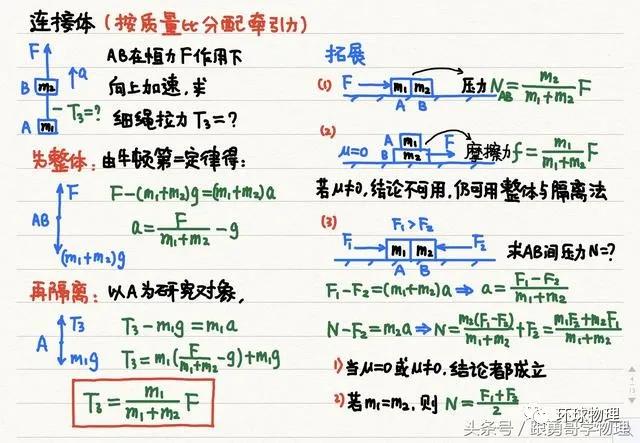 连接体(按质量比分配牵引力)
F
AB在恒力F作用下
B m₂ ↑a
向上加速,求
T₃=?
A m₁
细绳拉力T₃=?
先整体:由牛顿第二定律得:
F
AB
(m₁+m₂)g
F-(m₁+m₂)g=(m₁+m₂)a
a=F/(m₁+m₂)-g
再隔离:以A为研究对象,
T₃
A
m₁g
T₃-m₁g=m₁a
T₃=m₁(F/(m₁+m₂)-g)+m₁g
T₃=m₁/(m₁+m₂) F
拓展
(1) F→ m₁ m₂ 压力N_AB=m₂/(m₁+m₂) F
A B
(2)
μ=0 A m₁
B m₂ →F 摩擦力f=m₁/(m₁+m₂) F
若μ≠0,结论不可用,仍可用整体与隔离法
(3) F₁>F₂
F₁→ m₁ m₂ ←F₂ 求AB间压力N=?
A B
F₁-F₂=(m₁+m₂)a⇒a=(F₁-F₂)/(m₁+m₂)
N-F₂=m₂a⇒N=m₂(F₁-F₂)/(m₁+m₂)+F₂=(m₁F₂+m₂F₁)/(m₁+m₂)
1)当μ=0或μ≠0,结论都成立
2)若m₁=m₂,则N=(F₁+F₂)/2
环球物理
头条号/跟勇哥学物理